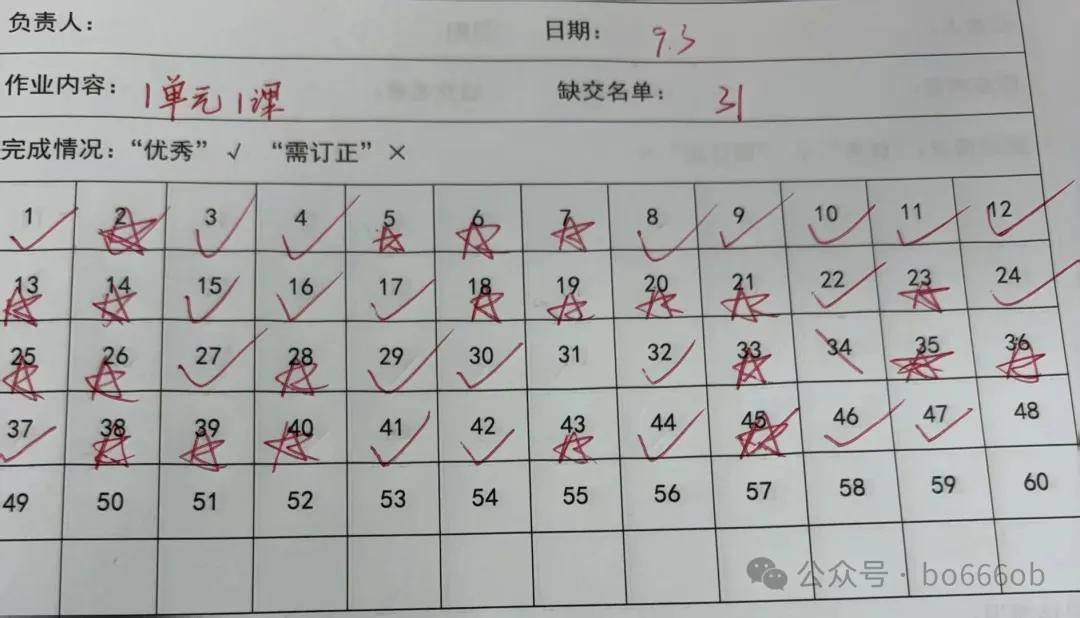 负责人： 日期： 9.3
作业内容： 1单元1课 缺交名单： 31
完成情况：“优秀” √ “需订正” ×
1 2 3 4 5 6 7 8 9 10 11 12
13 14 15 16 17 18 19 20 21 22 23 24
25 26 27 28 29 30 31 32 33 34 35 36
37 38 39 40 41 42 43 44 45 46 47 48
49 50 51 52 53 54 55 56 57 58 59 60
公众号·bo666ob